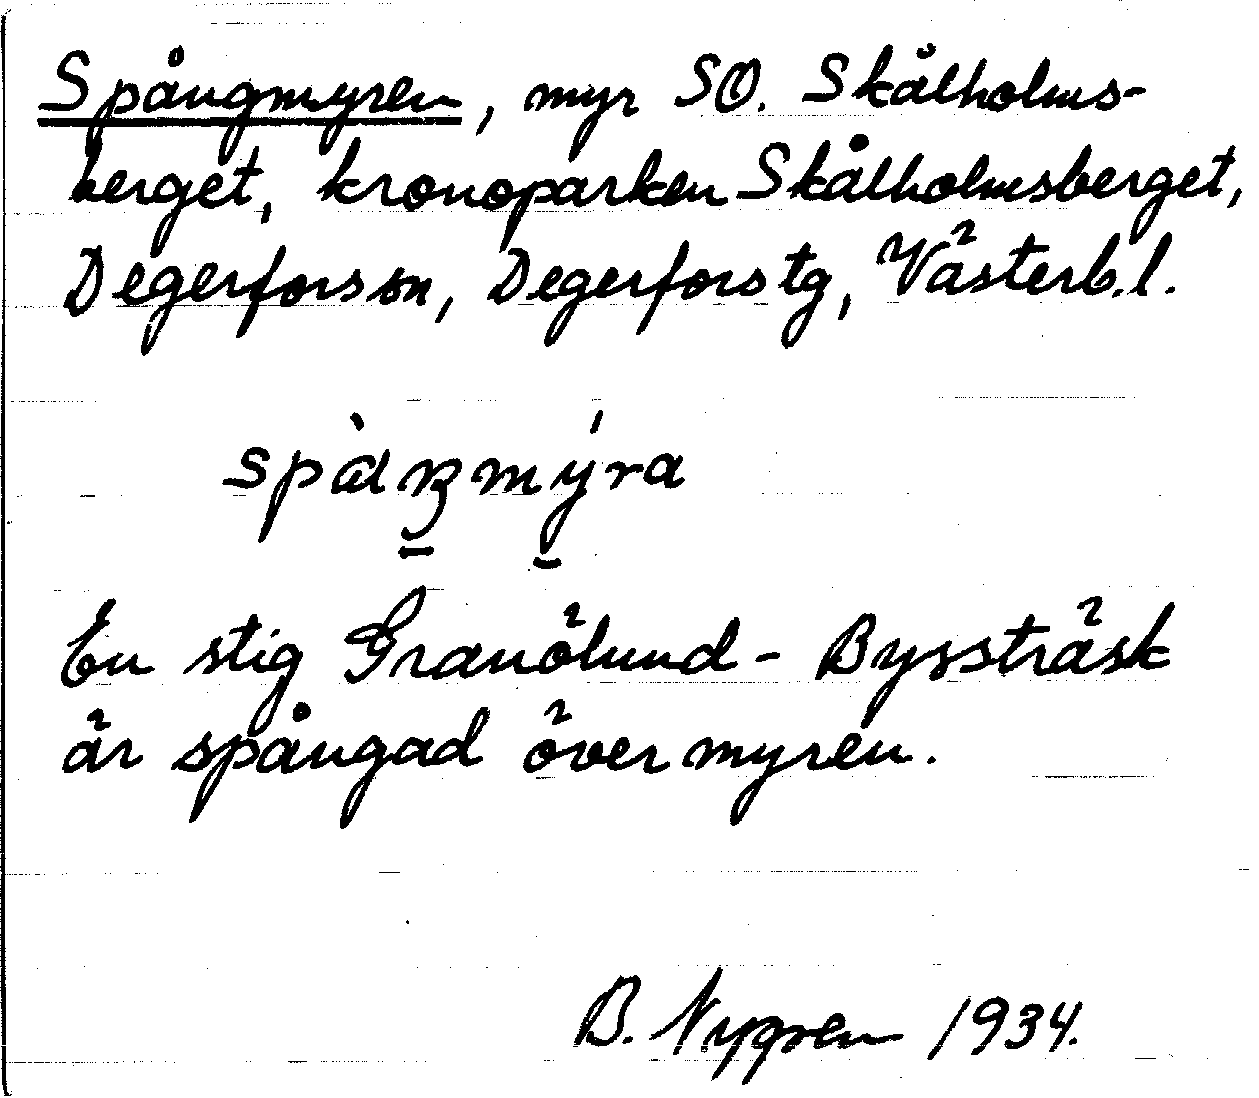 Spångmyren, myr SO. Skålholms-
berget, kronoparken Skålholmsberget,
Degerfors sn, Degerfors tg, Västerb. l.
En stig Granölund - Bysträsk
är spångad över myren.
B. Nygren 1934.